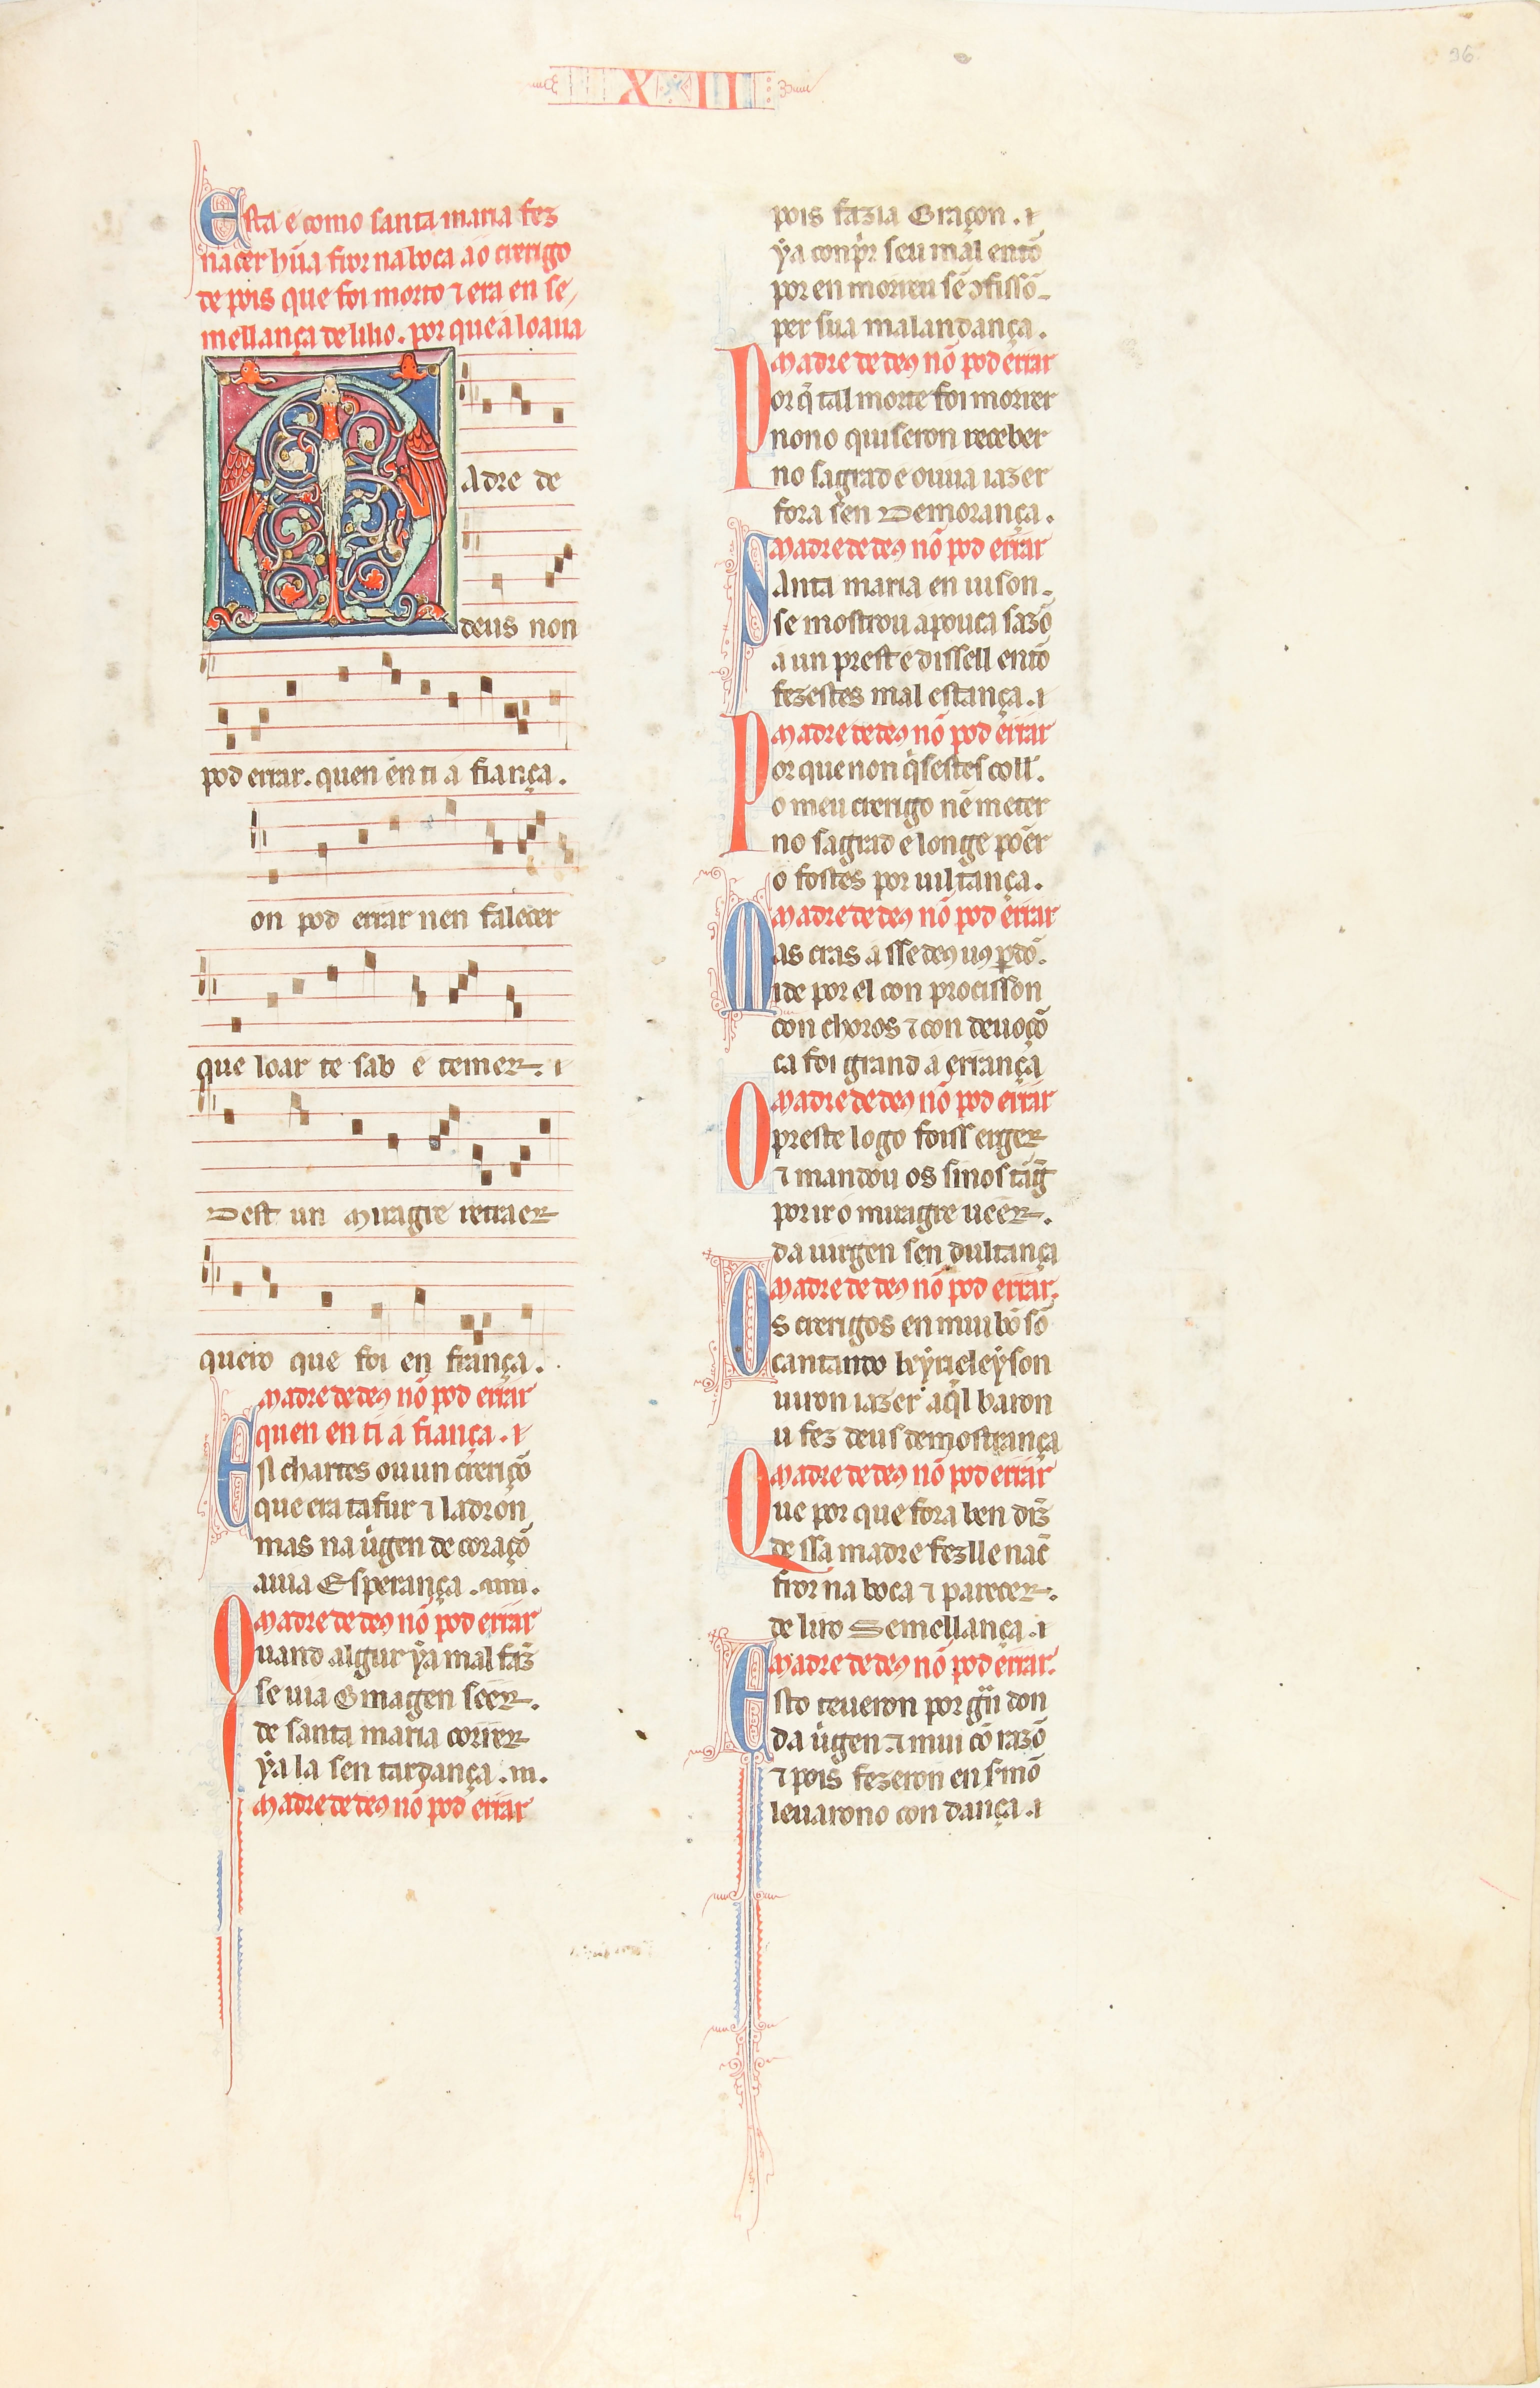 XXIIII
36
Esta e como santa maria fez
nacer hũa fror na boca ao crerigo
de pois que foi morto ⁊ era en se/
mellança de lilio. por que a loaua
Madre de
deus non
pod errar. quen en ti a fiança.
on pod errar nen falecer
que loar te sab e temer. ⁊
Dest un Miragre retraer
quero que foi en frança.
Madre de deꝰ nõ pod errar
quen en ti a fiança. ⁊
En chartes ouun crerigõ
que era tafur ⁊ ladron
mas na uirgen de coraçõ
auia Esperança.
Madre de deꝰ nõ pod errar
Quand algur ya mal faz̃
se uia Omagen seer.
de santa maria correr
ya la sen tardança.
Madre de deꝰ nõ pod errar
pois fazia Oraçon. ⁊
ya conp̃r seu mal entõ
por en morreu sẽ ↄfissõ
per sua malandança.
Madre de deꝰ nõ pod errar
Por q̃ tal morte foi morrer
nono quiseron receber
no sagrad e ouua iazer
fora sen Demorança.
Madre de deꝰ nõ pod errar
Santa maria en uison
se mostrou a pouca sazõ
a un prest e dissell entõ
fezestes mal estança. ⁊
Madre de deꝰ nõ pod errar
Por que non q̃sestes coll̃.
o meu crerigo nẽ meter
no sagrad e longe põer
o fostes por uiltança.
Madre de deꝰ nõ pod errar
Mas cras a sse deꝰ uꝰ ꝑdõ.
ide por el con procisson
con choros ⁊ con deuoçõ
ca foi grand a errança
Madre de deꝰ nõ pod errar
O preste logo foiss erger
⁊ mandou os sinos tãg̃
por ir o miragre ueer.
da uirgen sen dultança
Madre de deꝰ nõ pod errar.
Os crerigos en mui bõ sõ
cantando kyrieleyson
uiron iazer aq̃l baron
u fez deus demostrança
Madre de deꝰ nõ pod errar
Que por que fora ben diz̃
de ssa madre fezlle nac̃
fror na boca ⁊ parecer.
de liro Semellança. ⁊
Madre de deꝰ nõ pod errar.
Esto teueron por gñ don
da uirgen ⁊ mui cõ razõ
⁊ pois fezeron en s̃mõ
leuarono con dança. ⁊